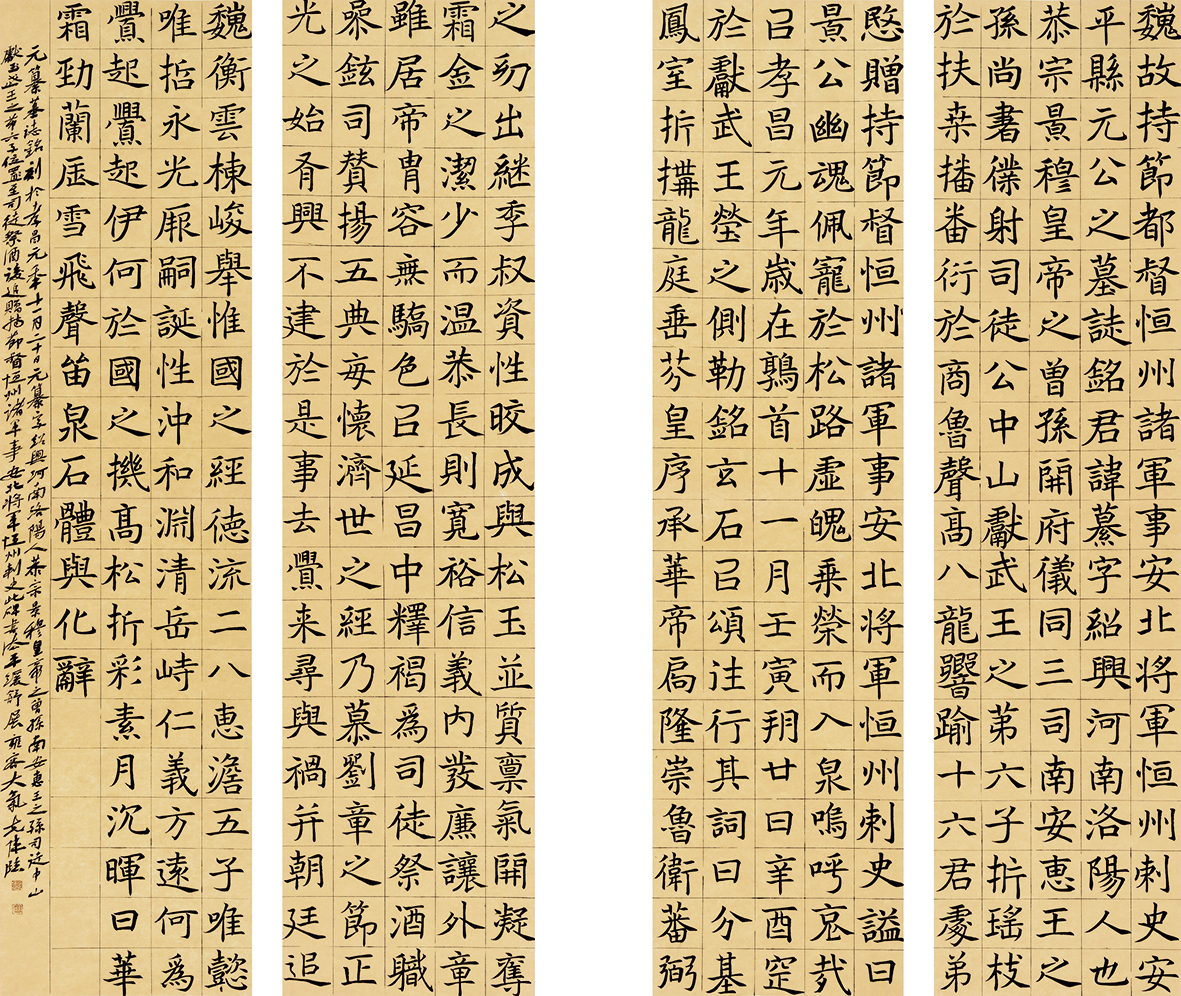 魏故持節都督恒州諸軍事安北將軍恒州刺史安
平縣元公之墓誌銘君諱纂字紹興河南洛陽人也
恭宗景穆皇帝之曽孫開府儀同三司南安惠王之
孫尚書僕射司徒公中山獻武王之第六子㧁瑤枝
於扶桒播番衍於商魯聲高八龍響踰十六君處弟
愍贈持節督恒州諸軍事安北將軍恒州刺史謚曰
景公幽魂佩寵於松路虛魄乗榮而入泉嗚呼哀㦲
㠯孝昌元年歲在鶉首十一月壬寅朔廿日辛酉窆
於獻武王塋之側勒銘玄石㠯頌注行其詞曰分基
鳳室㧁構龍庭垂芬皇序承華帝扃隆崇魯衛蕃弼
之初出継季叔資性皎成與松玉並質稟氣開凝奪
霜金之潔少而温恭長則寬裕信義内發亷讓外章
雖居帝胄容無驕色㠯延昌中釋褐為司徒祭酒職
喿鉉司賛揚五典毎懐濟世之經乃慕劉章之節正
光之始脊興不建於是事去釁来尋與禍并朝廷追
魏衡雲棟峻舉惟國之經徳流二八惠澹五子唯懿
唯哲永光厥嗣誕性沖和淵清岳峙仁義方遠何為
釁起釁起伊何於國之機高松折彩素月沉暉日華
霜勁蘭凋雪飛聲留泉石體與化辭
元纂墓誌銘刻於孝昌元年十一月二十日元纂字紹興河南洛陽人恭宗景穆皇帝之曽孫南安惠王之孫司徒中山
獻武王之第六子位至司徒祭酒後追贈持節督恒州諸軍事安北將軍恒州刺史此碑書法平緩舒展雍容大氣